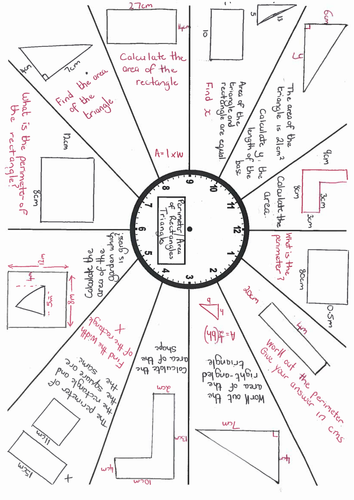 Perimeter, Area
of Rectangles
Triangle
12
1
2
3
4
5
6
7
8
9
10
11
27cm
4cm
Calculate the
area of the
rectangle
A=lxw
10
5
13
Area of the
triangle and
rectangle are equal
Find x
6cm
y
The area of the
triangle is 21cm²
Calculate y: the
length of the
base
9cm
8cm
3cm
3cm
Calculate the
area.
80cm
0.5m
What is the
perimeter?
20cm
4m
Work out the perimeter
Give your answer in cms
7cm
4cm
Work out the
area of the
right-angled
triangle
A=½(bh)
h
b
2cm
13cm
10cm
4cm
Calculate the
area of the
shape
11cm
15cm
x
The perimeter of
the rectangle and
the square are
the same
Find the width
of the rectangle
x
3m
8m
Calculate the
area of the
garden which
is grass!
12cm
8cm
What is the perimeter of
the rectangle?
4cm
7cm
Find the area
of the triangle